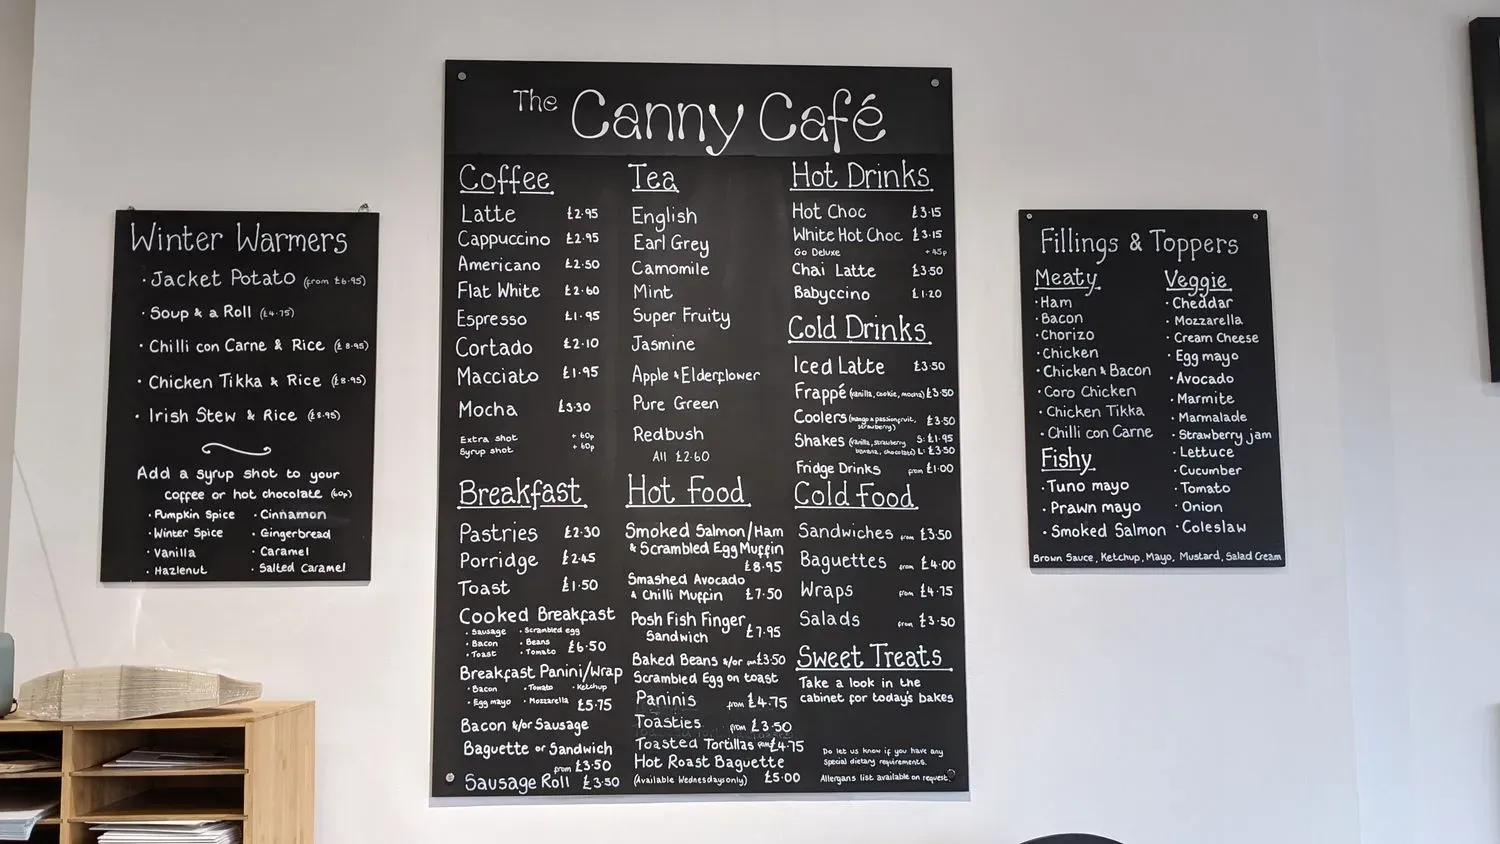 Winter Warmers
· Jacket Potato (from £6.95)
· Soup & a Roll (£4.75)
· Chilli con Carne & Rice (£8.95)
· Chicken Tikka & Rice (£8.95)
· Irish Stew & Rice (£8.95)
Add a syrup shot to your
coffee or hot chocolate (60p)
· Pumpkin Spice · Cinnamon
· Winter Spice · Gingerbread
· Vanilla · Caramel
· Hazlenut · Salted Caramel
The Canny Café
Coffee
Latte £2.95
Cappuccino £2.95
Americano £2.50
Flat White £2.60
Espresso £1.95
Cortado £2.10
Macciato £1.95
Mocha £3.30
Extra shot + 60p
Syrup shot + 60p
Tea
English
Earl Grey
Camomile
Mint
Super Fruity
Jasmine
Apple & Elderflower
Pure Green
Redbush
All £2.60
Hot Drinks
Hot Choc £3.15
White Hot Choc £3.15
Go Deluxe + 45p
Chai Latte £3.50
Babyccino £1.20
Cold Drinks
Iced Latte £3.50
Frappé (vanilla, cookie, mocha) £3.50
Coolers (mango & passionfruit, £3.50
strawberry)
Shakes (vanilla, strawberry S: £1.95
banana, chocolate) L: £3.50
Fridge Drinks from £1.00
Breakfast
Pastries £2.30
Porridge £2.45
Toast £1.50
Cooked Breakfast
· Sausage · Scrambled egg
· Bacon · Beans
· Toast · Tomato £6.50
Breakfast Panini/Wrap
· Bacon · Tomato · Ketchup
· Egg mayo · Mozzarella £5.75
Bacon &/or Sausage
Baguette or Sandwich
from £3.50
Sausage Roll £3.50
Hot Food
Smoked Salmon/Ham
& Scrambled Egg Muffin
£8.95
Smashed Avocado
& Chilli Muffin £7.50
Posh Fish Finger
Sandwich £7.95
Baked Beans &/or £3.50
Scrambled Egg on toast
Paninis from £4.75
Toasties from £3.50
Toasted Tortillas from £4.75
Hot Roast Baguette
(Available Wednesdays only) £5.00
Cold Food
Sandwiches from £3.50
Baguettes from £4.00
Wraps from £4.75
Salads from £3.50
Sweet Treats
Take a look in the
cabinet for today's bakes
Do let us know if you have any
special dietary requirements.
Allergans list available on request.
Fillings & Toppers
Meaty
· Ham
· Bacon
· Chorizo
· Chicken
· Chicken & Bacon
· Coro Chicken
· Chicken Tikka
· Chilli con Carne
Fishy
· Tuno mayo
· Prawn mayo
· Smoked Salmon
Veggie
· Cheddar
· Mozzarella
· Cream Cheese
· Egg mayo
· Avocado
· Marmite
· Marmalade
· Strawberry jam
· Lettuce
· Cucumber
· Tomato
· Onion
· Coleslaw
Brown Sauce, Ketchup, Mayo, Mustard, Salad Cream